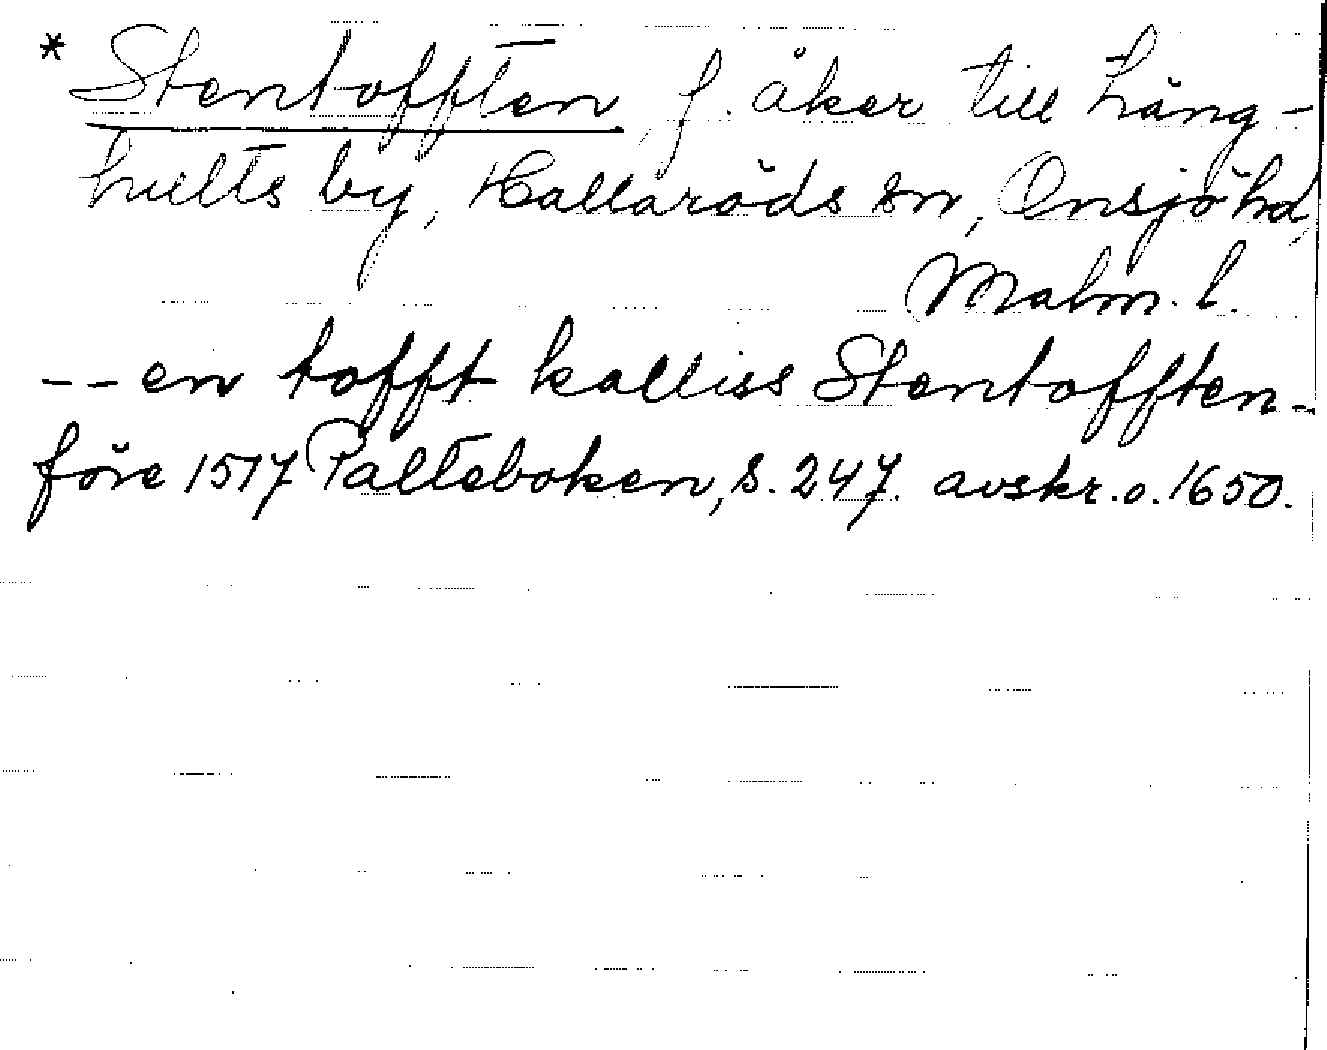 * Stentofften, f. åker till Lång-
hults by, Hallaröds sn, Onsjö hd,
Malm. l.
-- en tofft kalliss Stentofften -
före 1517 Palteboken, S. 247. avskr. o. 1650.